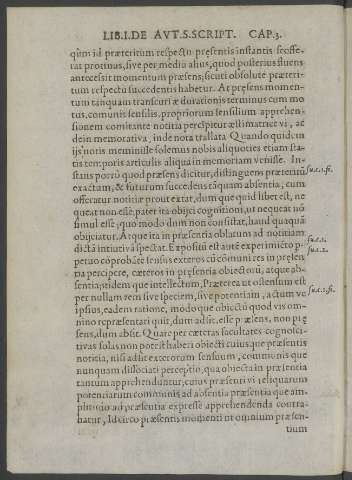 LIB.I.DE AVT.S.SCRIPT. CAP.3.
quùm id præteritum respectu præsentis instantis se offe-
rat protinus, sive per mediũ alius, quod posterius fluens
antecessit momentum præsens; sicuti obsolutè præteri-
tum respectu succedentis habetur. At præsens momen-
tum tanquam transcursi æ durationis terminus com mo
tus, communis sensilis, propriorum sensilium apprehen-
sionem comitante notitia percipitur æstimatrice vi, ac
dein memorativa, inde nota trallata Quando quidem in
ijs notis meminisse solemus nobis aliquoties etiam sta-
tis temporis articulis aliqua in memoriam venisse. In-
stans porrò quod præsens dicitur, distinguens præteritũ
su.c.1.fi.
exactam, & futurum succedens tãquam absentia, cum
offeratur notitiæ prout extat, dum que quid libet est, ne
queat non esse, pater ita obijci cognitioni, ut nequeat nõ
simul esse; quo modo dum non consistat, haud quaquã
obijciatur. Atque ita in præsentia oblatum ad notitiam
su.c.1.
dictã intuitivã spectat. Expositũ est ante experimẽto p-
su.c.2.
petuo cõprobãte sensus exteros cũ cõmuni res in præsen
tia percipere, cæteros in præsentia obiectorũ, atque ab-
sentia; itidem que intellectum. Præterea ut ostensum est
su.c.1.fi.
per nullam rem sive speciem, sive potentiam, actum ve
ipsius, eadem ratione, modo que obiectũ quod vis om-
nino repræsentari quit, dum adsit, esse præsens, non præ
sens, dum absit. Quare per cæteras facultates cognosci-
tivas solas non potest haberi obiecti cuiusque præsentis
notitia, nisi adsit exterorum sensuum, communis que
nunquam dissociati perceptio, qua obiecta in præsentia
tantum apprehenduntur, cuius præsenti vi reliquarum
potentiarum communis ad absentia præsentia que am-
plitudo ad præsentia expressè apprehendenda contra-
hatur, Idcirco præsentis momenti ut omnium præsen-
tium